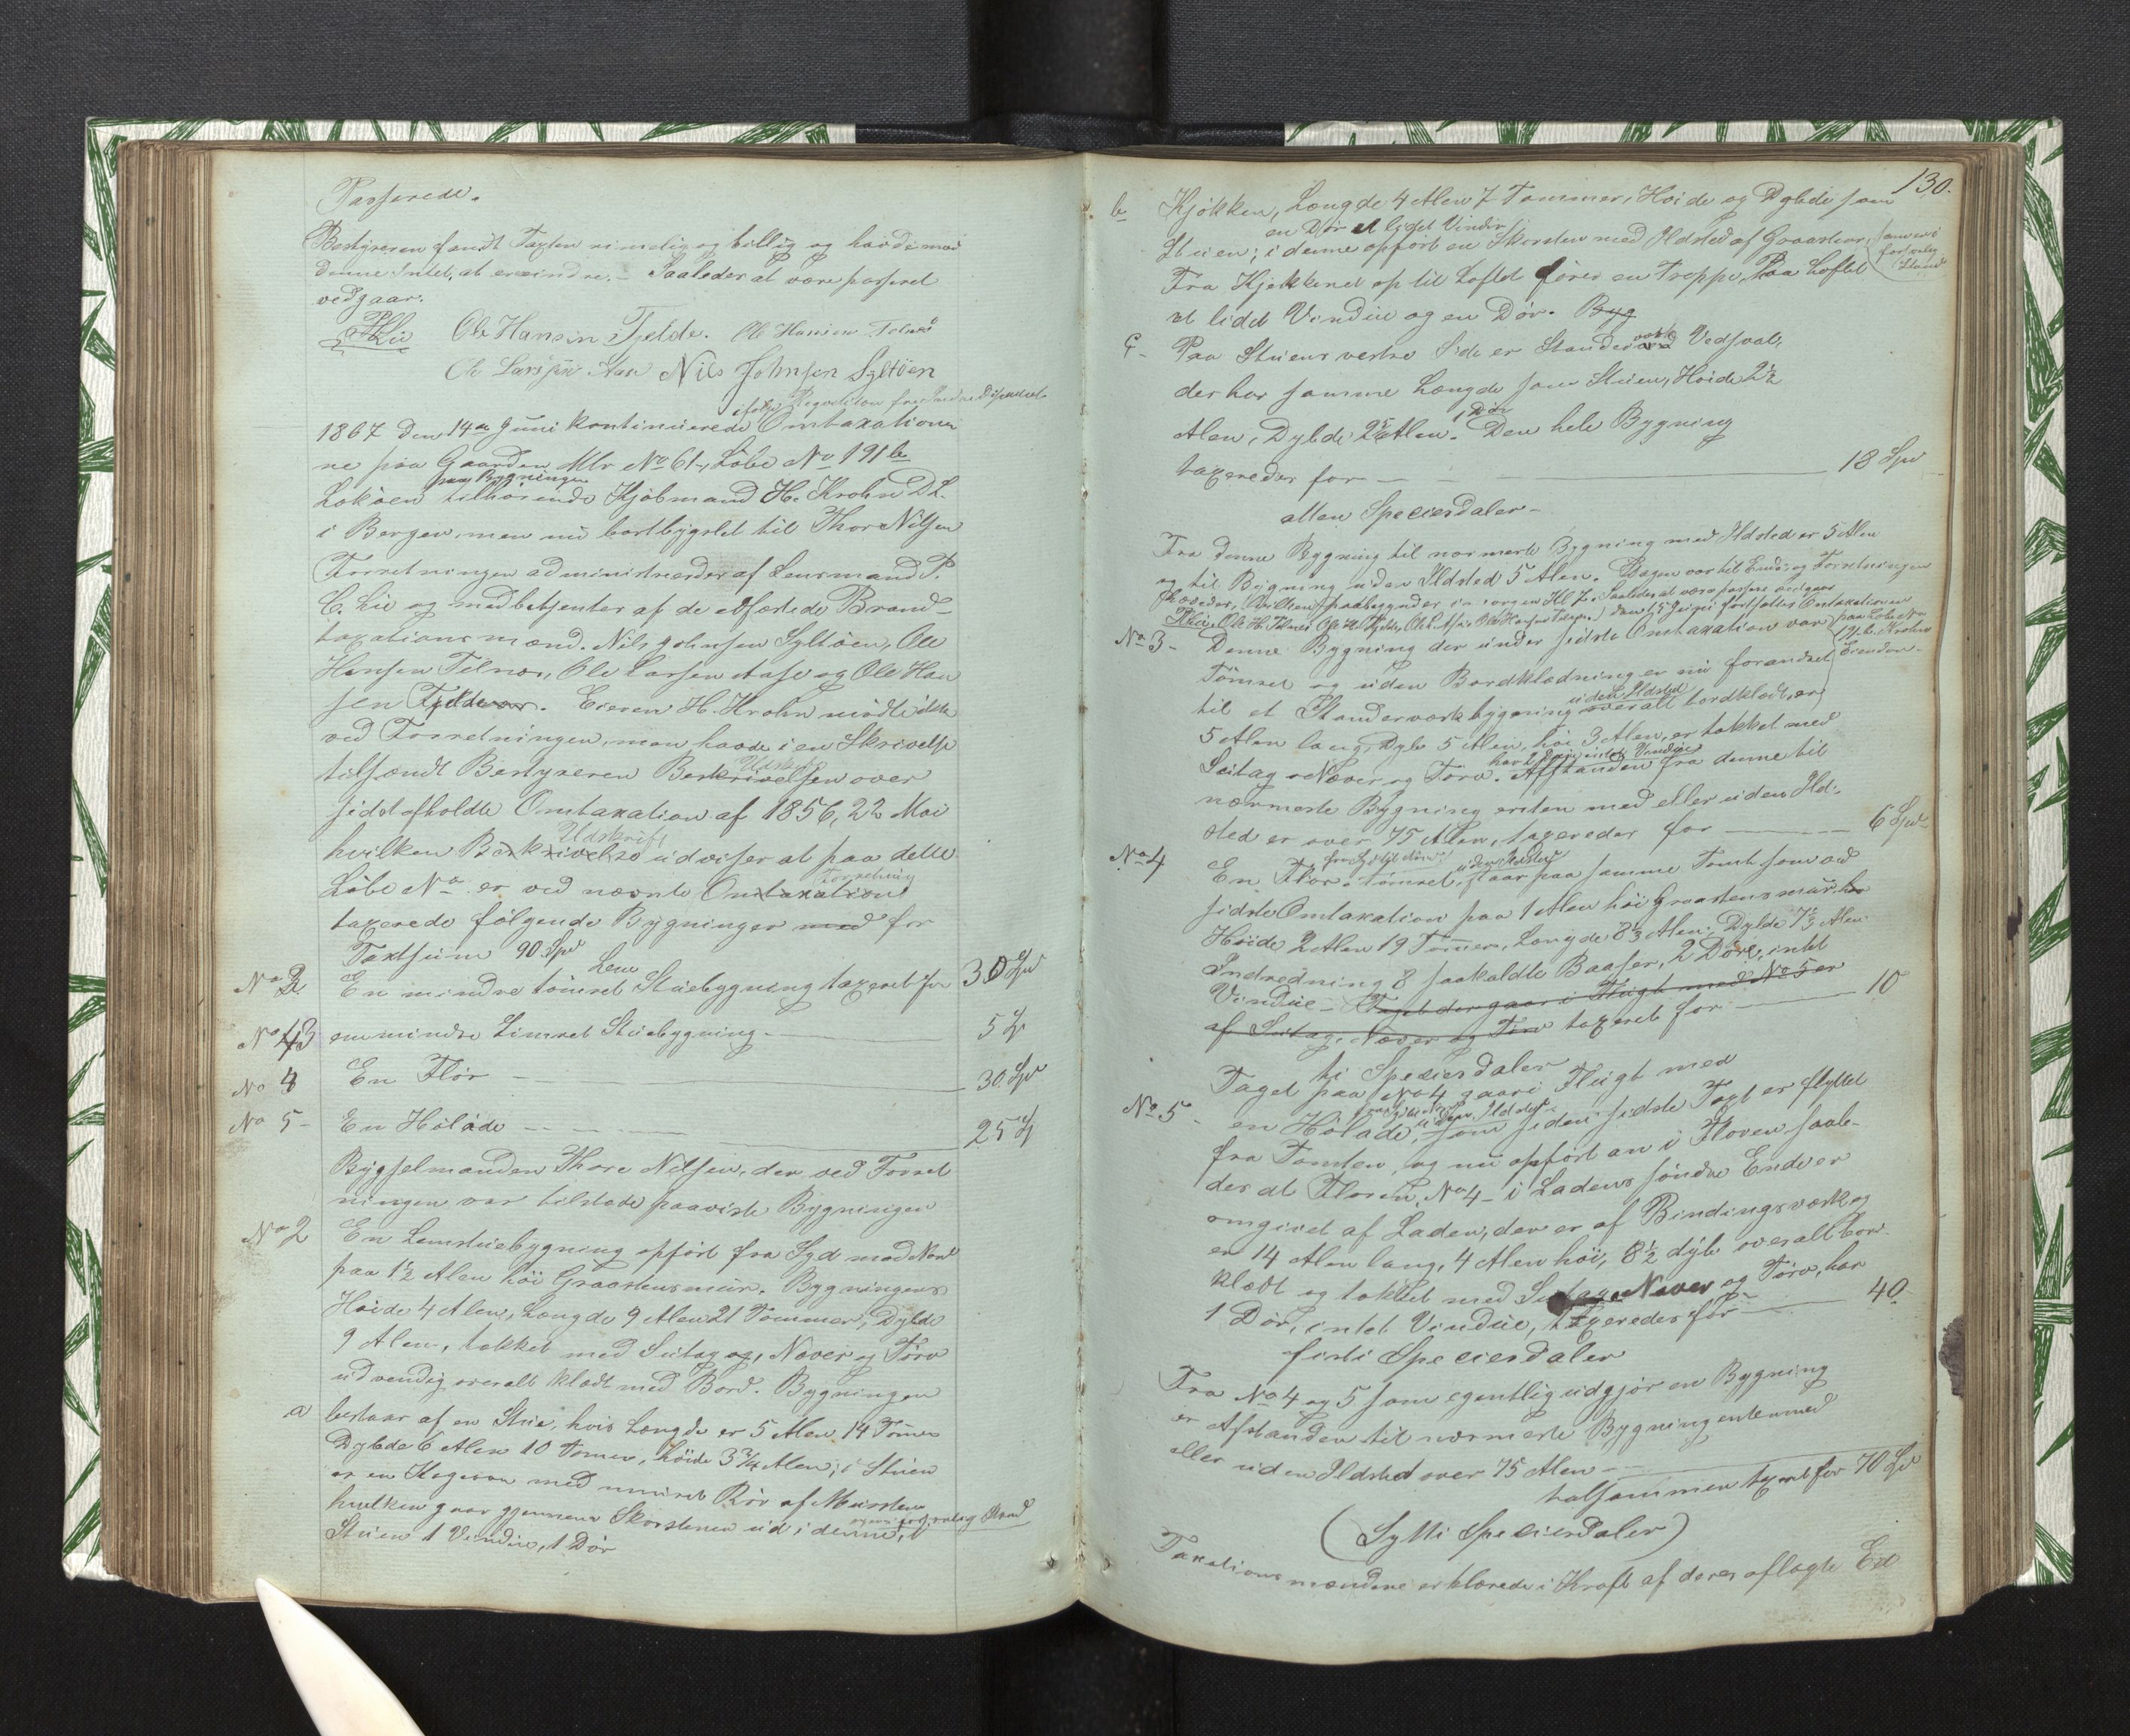 Passerede.
Bestyreren fandt Taxten rimelig og billig og havde mod
denne Intet at erindre. – Saaledes at være passeret
vedgaar.
Lie Ole Hansen Tjelde. Ole Hansen Telnes
Ole Larssen Aase Nils Johnsen Syltøen
ifølge Reqvisition fra
1867 den 14de Juni kontinuerede Omtaxationen
ne paa Gaarden Mtr No 61, Løbe No 191 b
paa Bygningen
Lokøen tilhørende Kjøbmand H. Krohn D.L.
i Bergen, men nu bortbygslet til Thore Nilsen
Forretningen administreredes af Lensmand P.
C. Lie og medbetjentes af de edfæstede Brand-
taxationsmænd. Nils Johnsen Syltøen, Ole
Hansen Telnes, Ole Larsen Aase og Ole Han
sen Tjelde. Eieren H. Krohn mødte ikke
ved Forretningen, men havde i en Skrivelse
Udskrift
tilsendt Bestyreren Beskrivelsen over
sidst afholdte Omtaxation af 1856, 22 Mai
Udskrift
hvilken Beskrivelse udviser at paa dette
Forretning
Løbe No er ved nævnte Omtaxation
taxerede følgende Bygninger med for
Taxtsum 90 Spd
Lem
No 2 En mindre tømret Stuebygning taxeret for 30 Spd
No 3 en mindre tømret Stuebygning 5 "
No 4 En Flor 30 Spd
No 5 – En Hølade 25 "
Bygselmanden Thore Nilsen, der ved Forret
ningen var tilstede paaviste Bygningen
No 2 En Lemstuebygning opført fra Syd mod Nord
paa 1½ Alen høi Graastensmur. Bygningens
Høide 4 Alen, Længde 9 Alen 21 Tommer, Dybde
9 Alen, tækket med Sutag og, Næver og Tørv
udvendig overalt klædt med Bord. Bygningen
a bestaar af en Stue, hvis Længde er 5 Alen 14 Tommer
Dybde 6 Alen 10 Tommer, høide 3¾ Alen; i Stuen
er en Kogeovn med muret Rør af Mursten
hvilken gaar gjennem Skorstenen ud, i denne, i forsvarlig Stand
Stuen 1 Vindue, 1 Dør
130.
b Kjøkken, Længde 4 Alen 7 Tommer, Høide og Dybde som
en Dør et lidet Vindue
Stuen; i denne opført en Skorsten med Ildsted af Graasten, som er i
forsvarlig
Stand
Fra Kjøkkenet op til Loftet fører en Trappe, Paa Loftet
et lidet Vindue og en Dør. Byg
c – Paa Stuens vestre Side er Standerværk Vedsval,
der har samme Længde som Stuen, Høide 2½
1 Dør
Alen, Dybde 2 Alen. Den hele Bygning
taxeredes for 18 Spd
atten Speciesdaler –
Fra denne Bygning til nærmeste Bygning med Ildsted er 5 Alen
og til Bygning uden Ildsted 5 Alen. Dagen var til Ende og Forretningen
hævedes, hvilken paabegyndes i morgen Kl 7. Saaledes at være passere vedgaar
Lie, Ole H. Telnes Den 15 Juni fortsattes Omtaxationen
paa Løbe No
191 b. Krohns
Eiendom –
No 3 – Denne Bygning der under sidste Omtaxation var
Tømret og uden Bordklædning er nu forandret
uden Ildsted
til et Standerværksbygning overalt bordklædt, er
5 Alen lang, Dyb 5 Alen, høi 3 Alen, er tækket med
har 1 Dør, intet Vindue
Sutag, Næver og Tørv. Afstanden fra denne til
nærmeste Bygning enten med eller uden Ild-
sted er over 75 Alen, taxeredes for 6 Spd
fra Syd til Nord uden Ildsted
No 4 En Flor, tømret, staar paa samme Tomt som ved
sidste Omtaxation paa 1 Alen høi Graastensmur. har
Høide 2 Alen 19 Tommer, Længde 8⅓ Alen, Dybde 7½ Alen
Indredning 8 saakaldte Baaser, 2 Døre, intet
Vindue – Taget der gaar i Flugt med No 5 er
af Sutag, Næver og Tørv taxeret for 10
ti Speciesdaler
Taget paa No 4 gaar i Flugt med
uden Ildsted
No 5 – en Hølade, som siden sidste Taxt er flyttet
fra Tomten, og nu opført om i Floren saale-
des at Floren, No 4 – i Ladens søndre Ende er
omgivet af Laden, der er af Bindingsværk og
er 14 Alen lang, 4 Alen høi, 8½ dyb overalt bord-
klædt og tækket med Sutag, Næver og Tørv, har
1 Dør, intet Vindue, taxeredes for 40
firti Speciesdaler
Fra No 4 og 5 som egentlig udgjør en Bygning
er Afstanden til nærmeste Bygning enten med
eller uden Ildsted over 75 Alen
tilsammen taxeret for 70 Spd
(Sytti Speciesdaler)
Taxationsmændene erklærede i Kraft af deres aflagte Ed